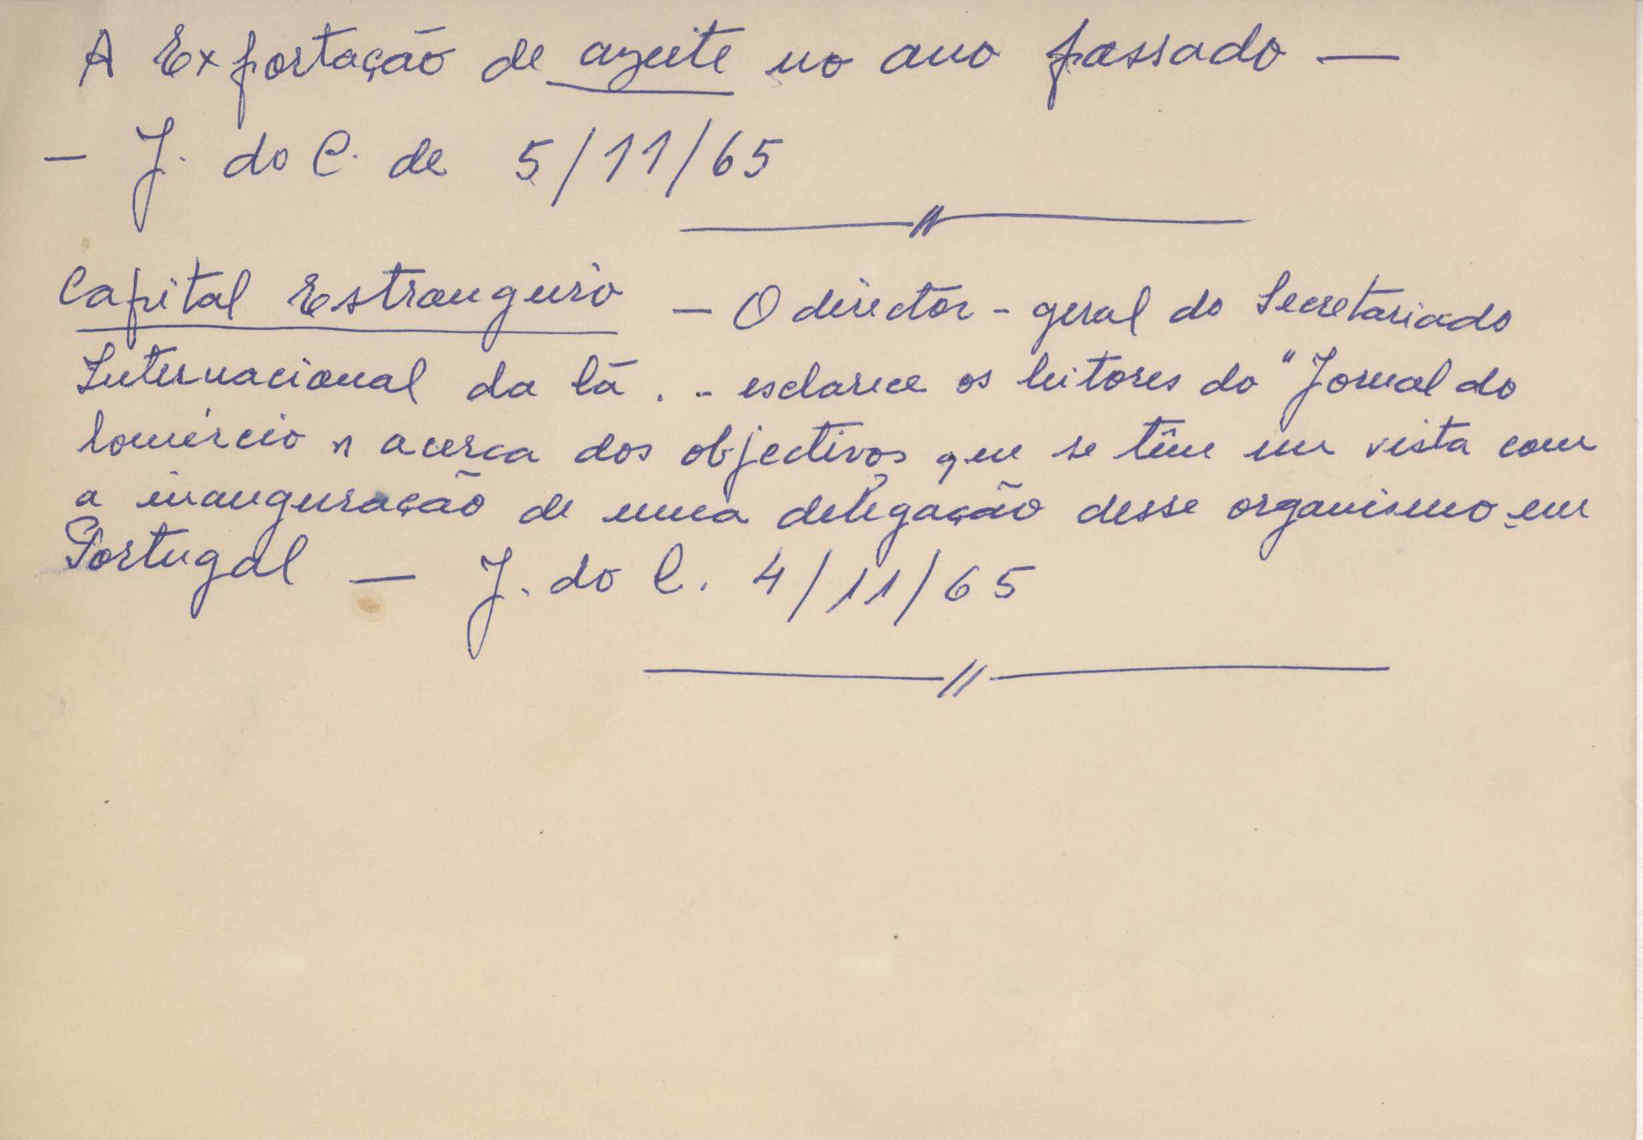 A Exportação de azeite no ano passado —
— J. do C. de 5/11/65
Capital Estrangeiro — O director-geral do Secretariado
Internacional da lã .. esclarece os leitores do "Jornal do
Comércio" acerca dos objectivos que se têm em vista com
a inauguração de uma delegação desse organismo em
Portugal — J. do C. 4/11/65